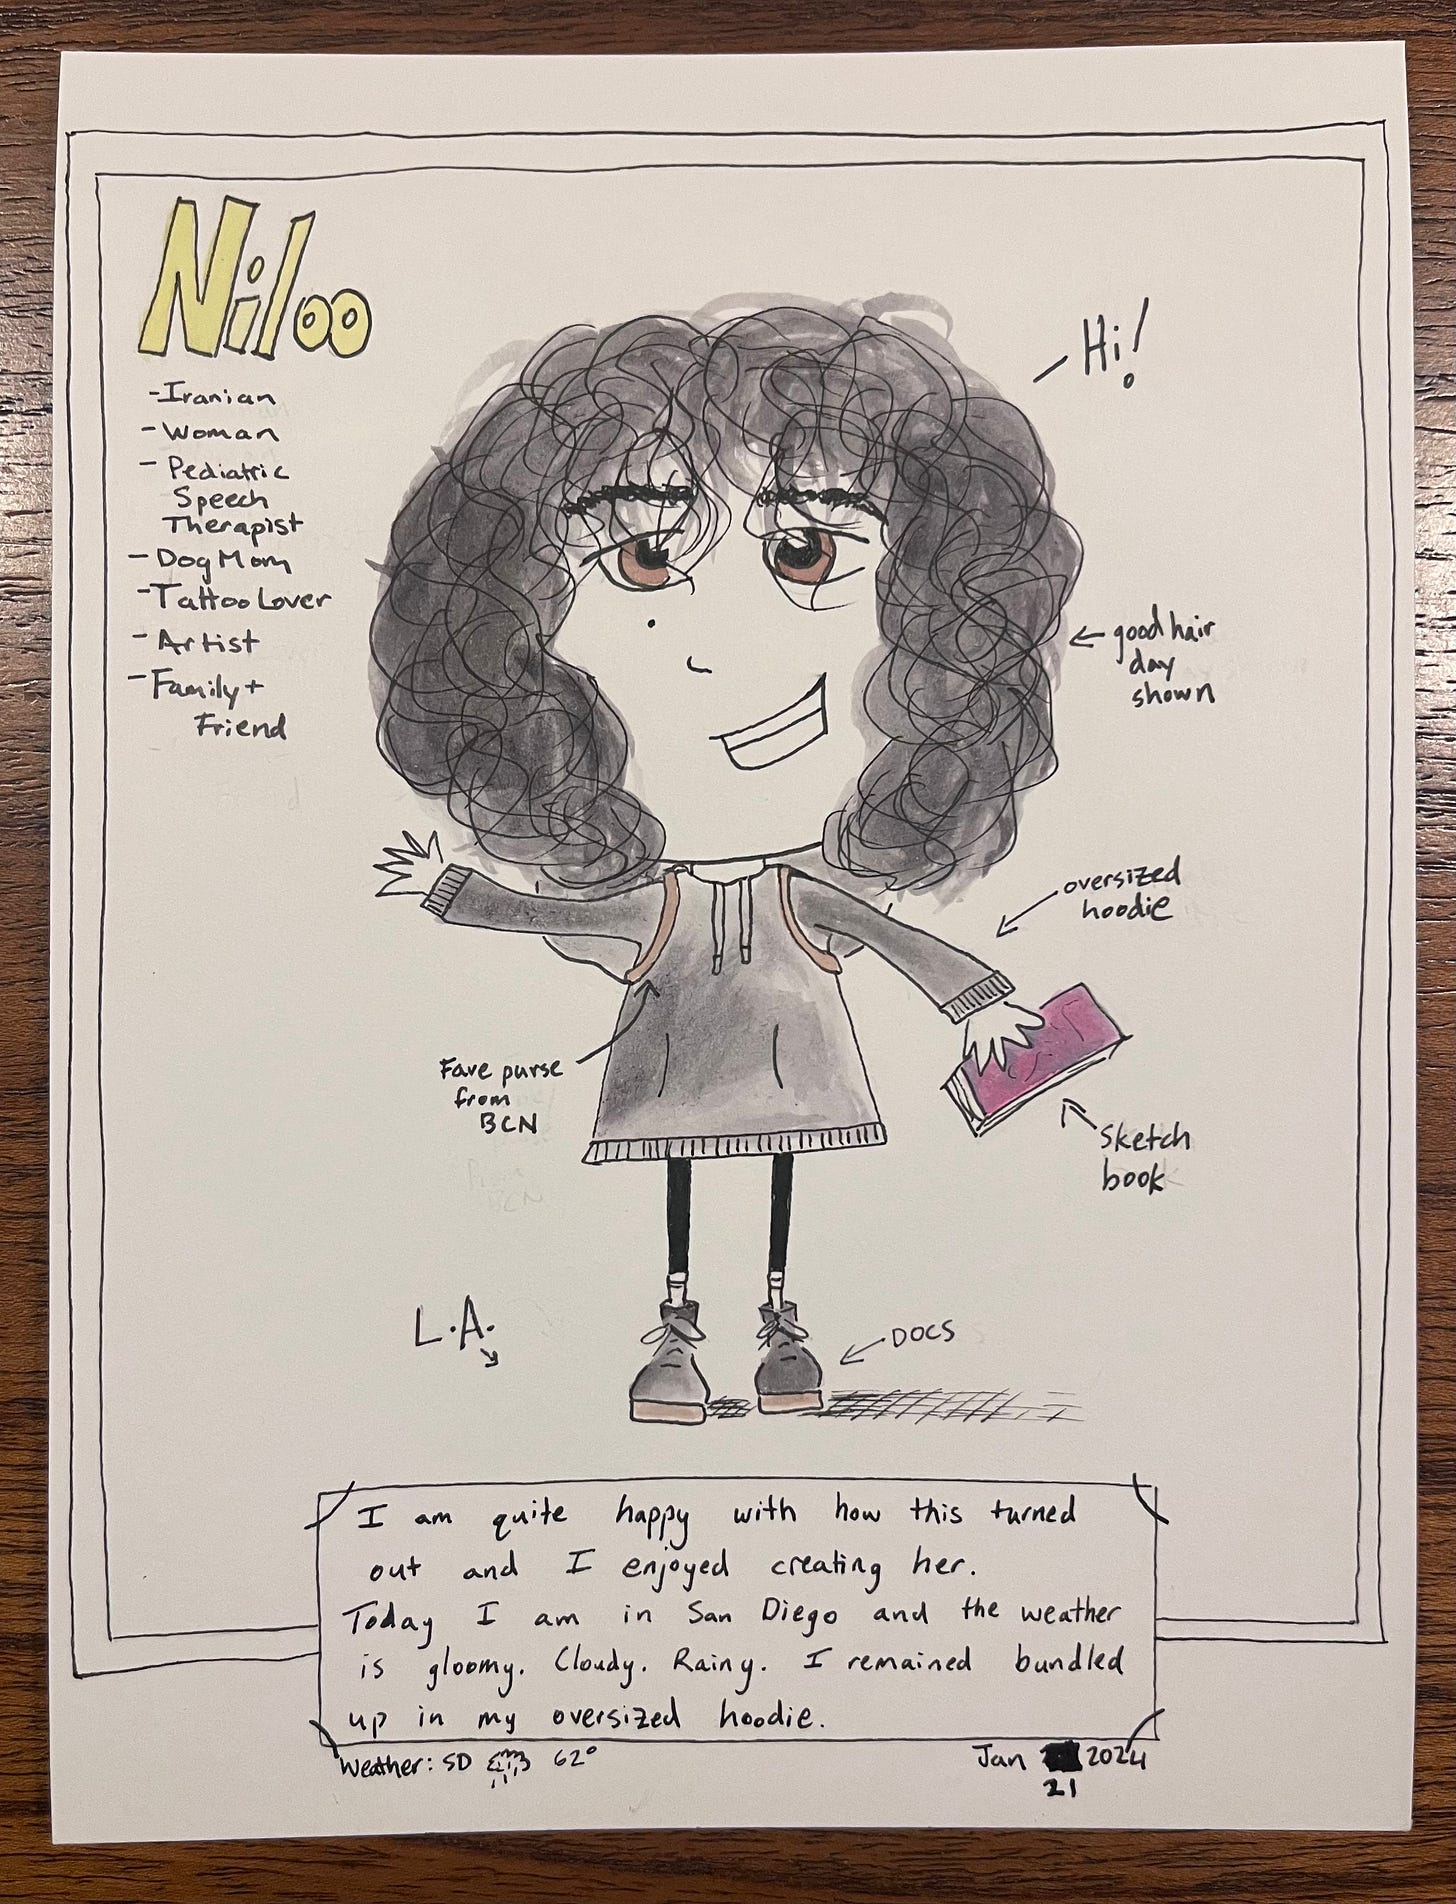 Niloo
-Iranian
-Woman
- Pediatric
Speech
Therapist
- Dog Mom
-Tattoo Lover
- Artist
- Family +
Friend
Hi!
good hair
day
shown
oversized
hoodie
Fave purse
from
BCN
Sketch
book
L.A.
DOCS
I am quite happy with how this turned
out and I enjoyed creating her.
Today I am in San Diego and the weather
is gloomy. Cloudy. Rainy. I remained bundled
up in my oversized hoodie.
Weather: SD 62°
Jan 2024
21